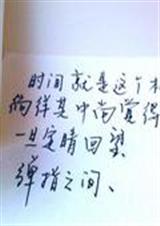 时间就是这个
徜徉其中尚觉得
一旦定睛回望、
弹指之间、